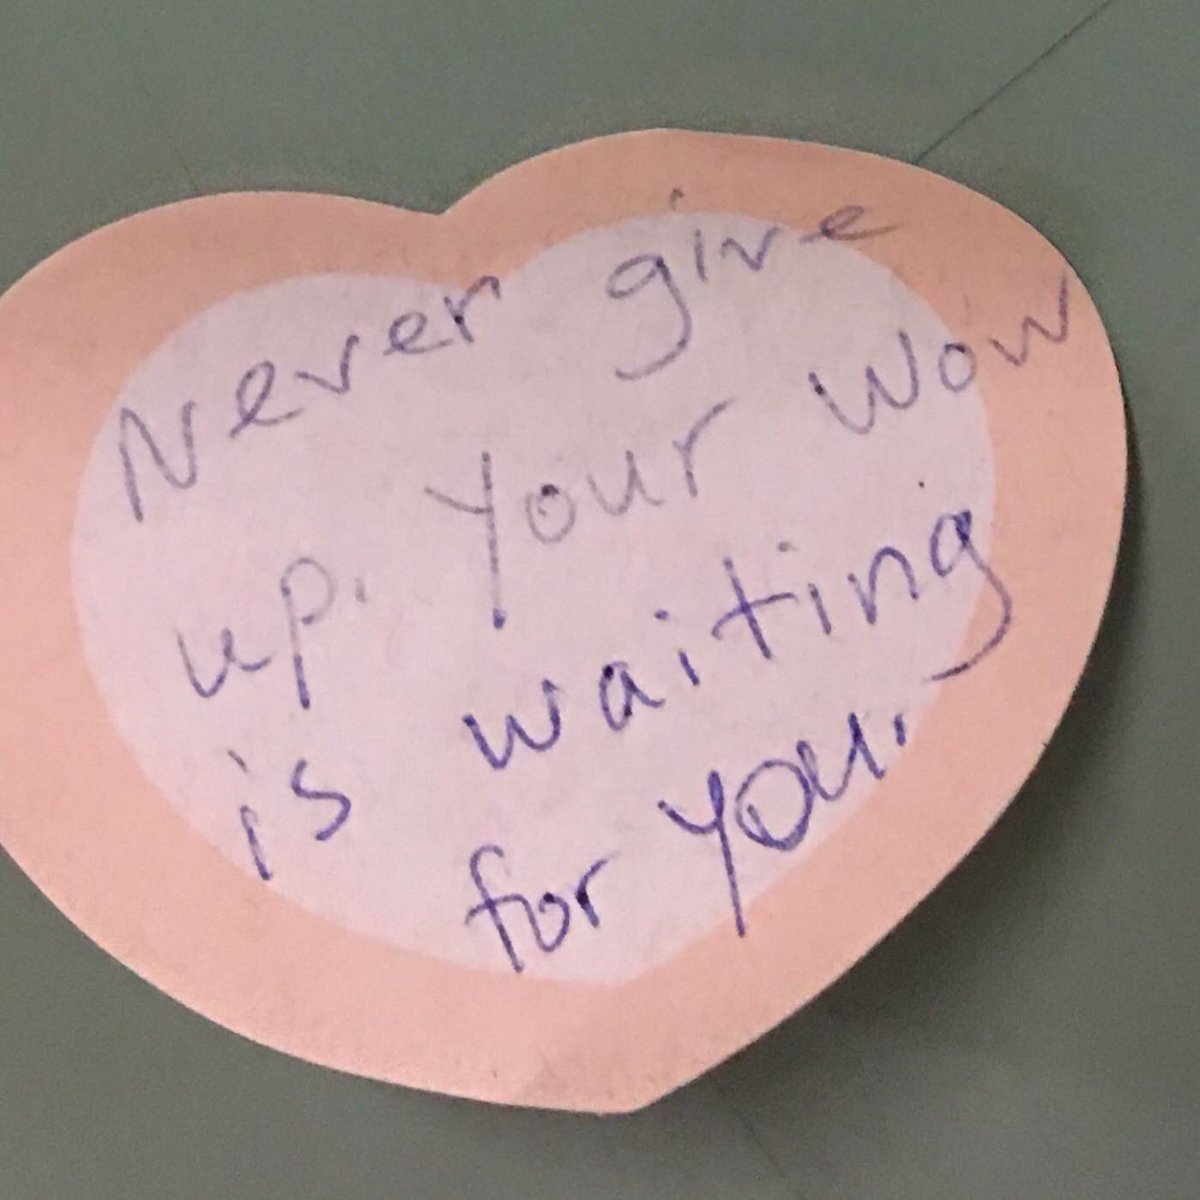 Never give
up. Your Wow
is waiting
for you.